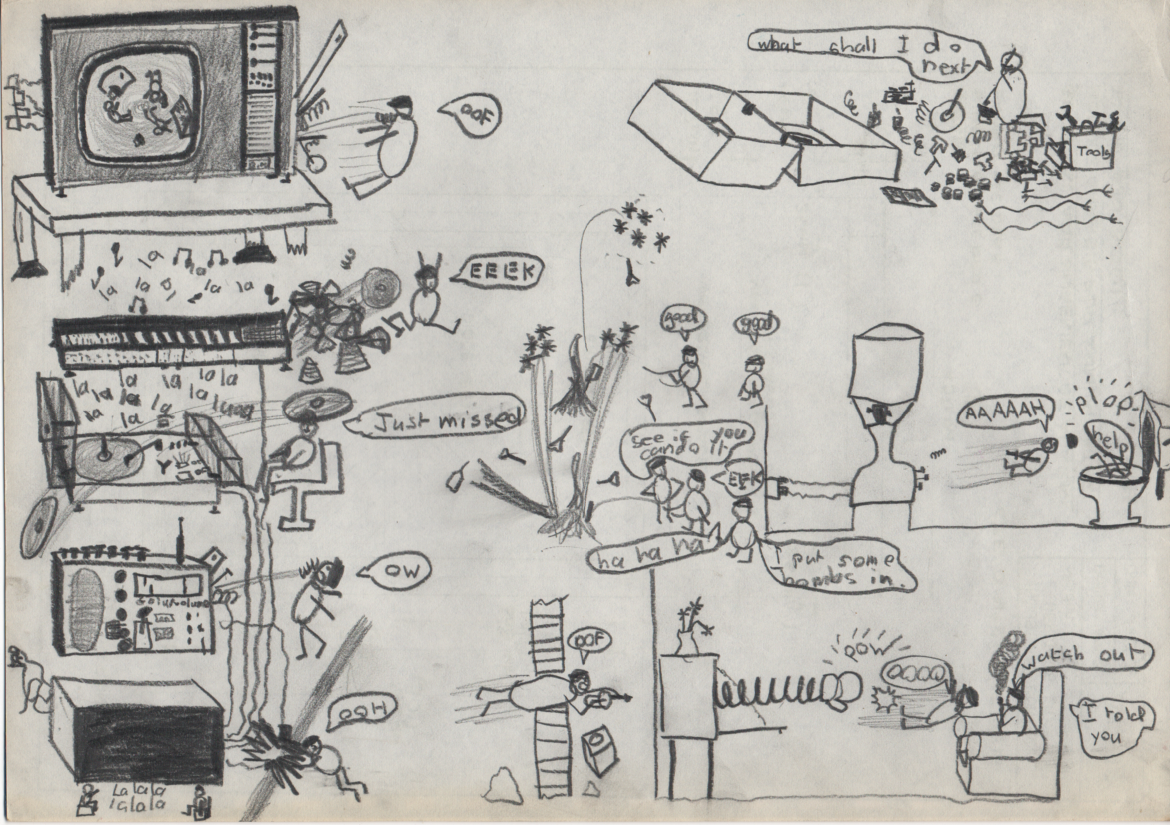 what shall I do
next
OOF
Tools
EEEK
la la
la la la la la
good
good
la la la la la
la la la
la la la
Just missed
see if you
can do it
EEK
AAAAAH
plop
help
ha ha ha
I put some
bombs in.
OW
OOF
POW
OOOO
watch out
I told
you
OOH
La la la
la la la